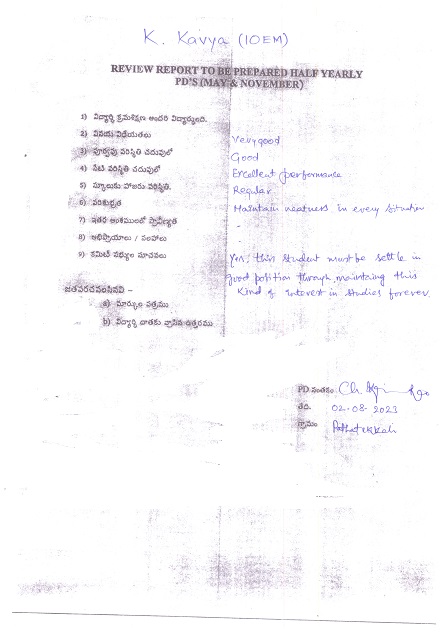 K. Kavya (IOEM)
REVIEW REPORT TO BE PREPARED HALF YEARLY
PD'S (MAY & NOVEMBER)
1) విద్యార్థి క్రమశిక్షణ అందరి విద్యార్థులది.
2) వినయ విధేయతలు Verygood
3) పూర్వపు పరిస్థితి చదువులో Good
4) నేటి పరిస్థితి చదువులో Excellent performance
5) స్కూలుకు హాజరు పరిస్థితి. Regular
6) పరిశుభ్రత Maintain neatness in every situation
7) ఇతర అంశములలో ప్రావీణ్యత -
8) అభిప్రాయాలు / సలహాలు
9) కమిటీ సభ్యుల సూచనలు Yes, this student must be settle in
good position through maintaing this
జతపరచవలసినవి - Kind of interest in studies forever
a) మార్కుల పత్రము
b) విద్యార్థి దాతకు వ్రాసిన ఉత్తరము
PD సంతకం Ch
తేది. 02-08-2023
గ్రామం